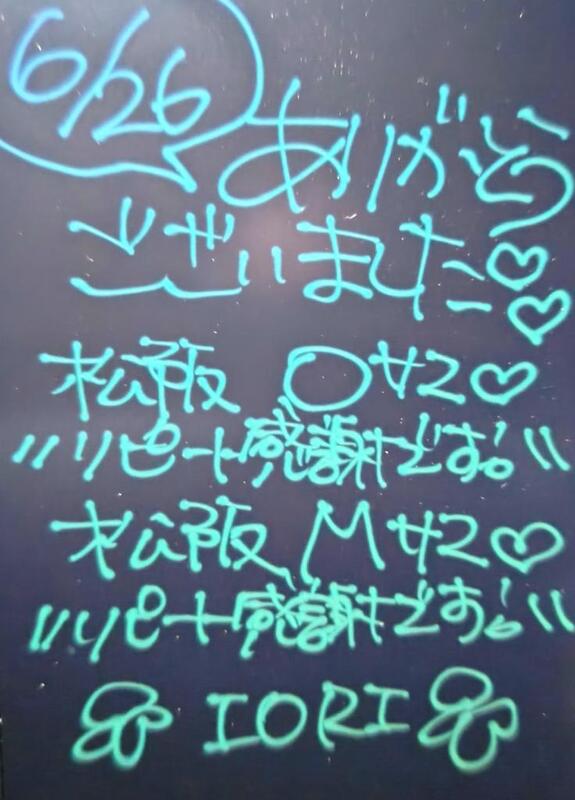 6/26
ありがとう
ございました♡♡
松阪 Oサマ♡
"リピート感謝です!"
松阪 Mサマ♡
"リピート感謝です!"
IORI